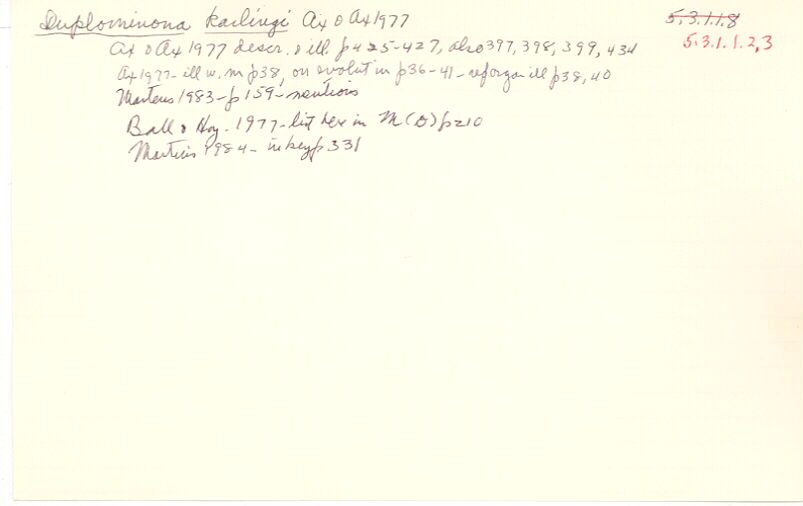 Duplominona karlingi Ax & Ax 1977
5.3.1.1.8
5.3.1.1.2,3
Ax & Ax 1977 descr. & ill. p425-427, also 397, 398, 399, 434
Ax 1977 - ill w. m p38, on evolut in p36-41 - reprorgan ill p38, 40
Martens 1983 - p159 - mentions
Ball & Hay. 1977 - list in M(O) p210
Martens 1984 - in key p331